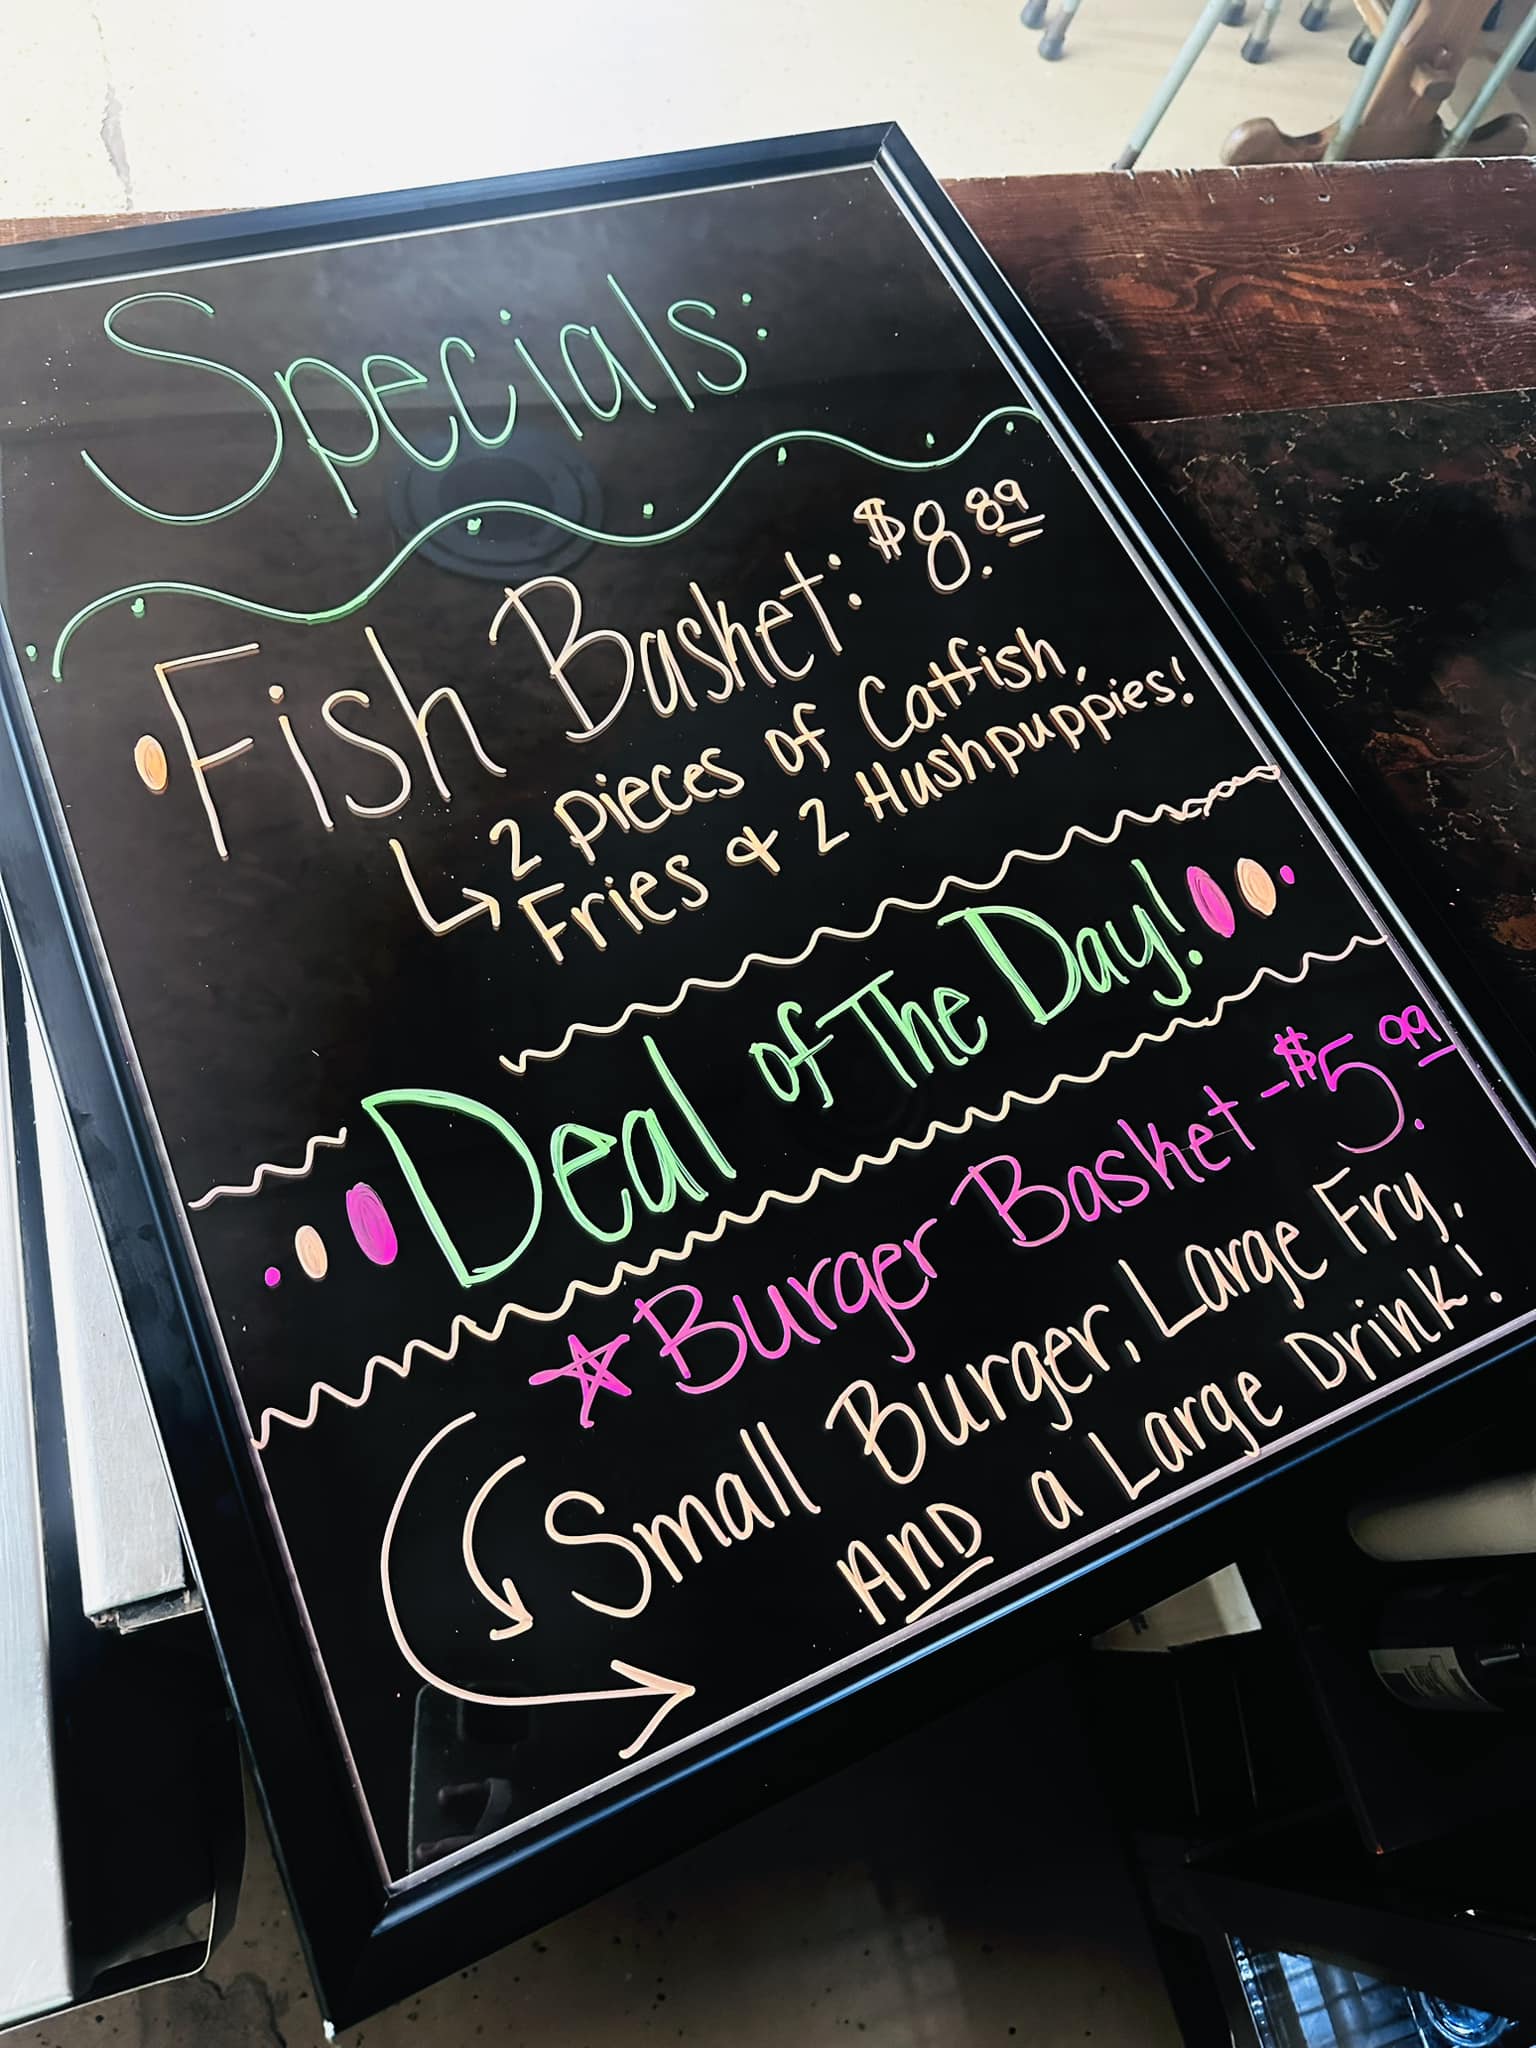 Specials:
Fish Basket: $8.89
2 pieces of Catfish,
Fries & 2 Hushpuppies!
Deal of The Day!
Burger Basket - $5.99
Small Burger, Large Fry,
AND a Large Drink!